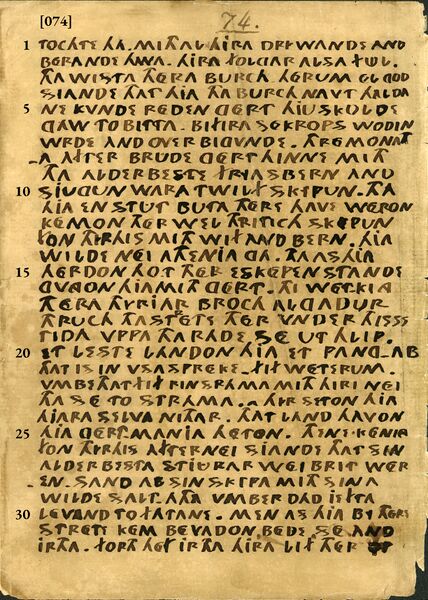 [074]
74.
1 TOCHTE HJA. MITH AL HIRA DRIWANDE AND
BERANDE HAVA. HIRA FOLGAR ALSA FUL.
THA WISTA THERA BURCH HERUM EL GOD
SIANDE THAT HIA THA BURCH NAVT HALDA
5 NE KVNDE REDEN GERT HIU SKOLDE
GAW TO BITTA. BIFIRA SEKROPS WODIN
WRDE AND OVER BIGVNDE. THREMONATH
A AFTER BRUDE GERT HINNE MITH
THA ALDERBESTE FRIASBERN AND
10 SIUGUN WARA TWILF SKEPUN. THA
HIA EN STUT BUTA THERE HAVE WERON
KEMON THER WEL THRITICH SKEPUN
FON THYRHIS MITH WIF AND BERN. HIA
WILDE NEI ATHENIA GA. THA AS HIA
15 HERDON HO THER ESKEPEN STANDE
GVNGON HIA MITH GERT. THI WETKING
THERA THYRIAR BROCHT ALGADUR
THRUCH THA STRETE THER VNDER THISSE
TIDA VPPA THA RADE SE UTHLIP.
20 ET LESTE LANDON HIA ET PANG-AB
THAT IS IN VSA SPREKE FIF WETERUM.
VMBETHAT FIF RINSTRAMA MITH HIRI NEI
THA SE TO STRAMA. HYR SETON HIA
HIARA SELVA NITHAR. THAT LAND HAVON
25 HIA GERTMANIA HETON. THENE KENING
FON THYRHIS AFTERNEI SIANDE THAT SIN
ALDERBESTA STIURAR WEI BRIT WER
EN. SAND AL SIN SKIPA MITH SINA
WILDE SALTATHA VMBER DAD IEFTA
30 LEVAND TO FATANE. MEN AS HIA BY THERE
STRETE KEM BEVADON. BEDE SE AND
IRTHA. FORTH HEF IRTHA HIRA LIF THER